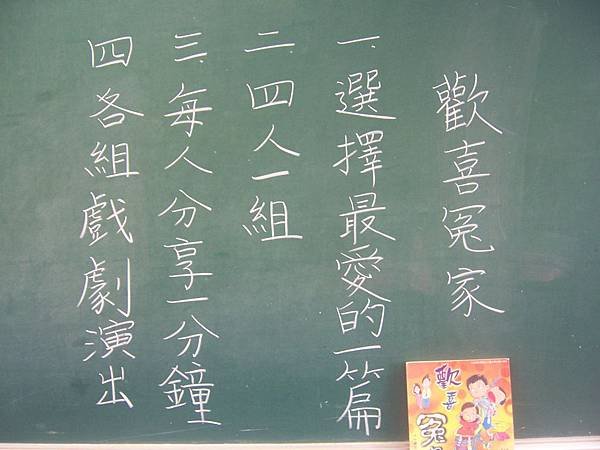 歡喜冤家
一.選擇最愛的一篇
二.四人一組
三.每人分享一分鐘
四各組戲劇演出
歡喜
冤